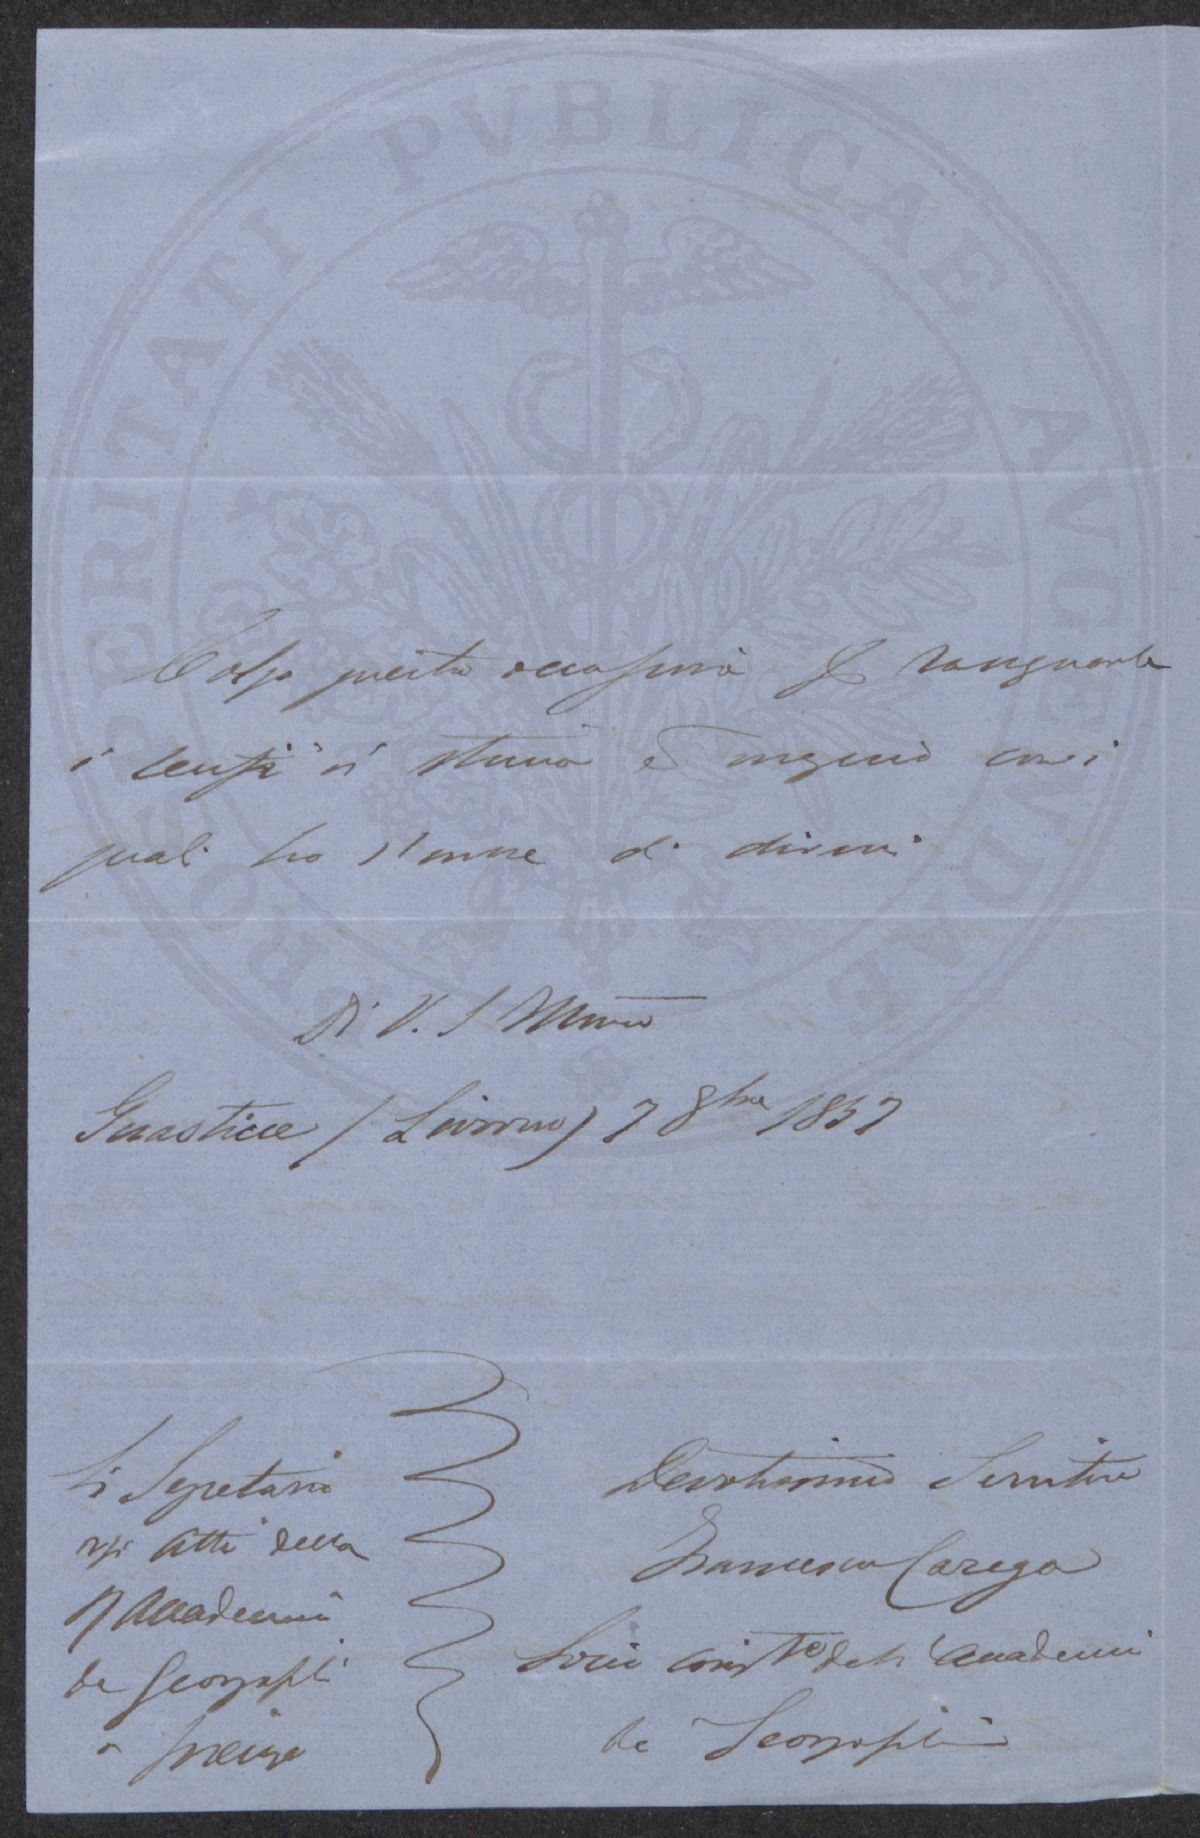 PROSPERITATI PVBLICAE AVGENDAE
Colgo questa occasione per
i sensi di stima e con i
quali ho l'onore di dirmi
Di V. S. Illma
Guasticce (Livorno) 7 8bre 1857
Al Segretario
degli Atti della
R Accademia
de Georgofili
a Firenze
Devotissimo Servitore
Francesco Carega
Socio corrte dell'Accademia
de Georgofili